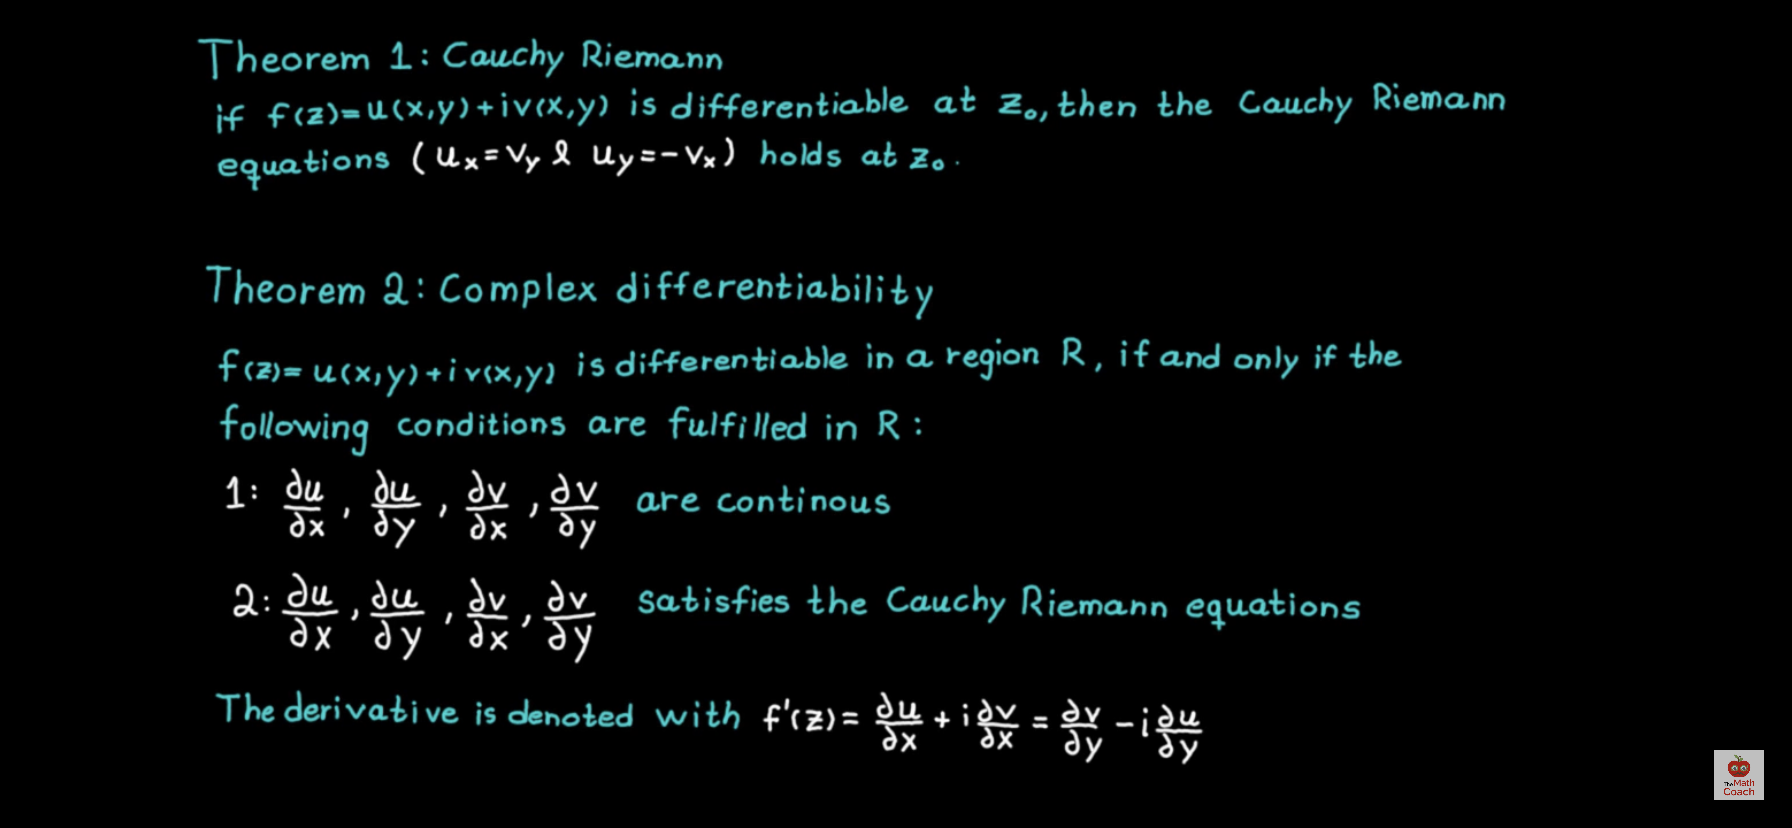 Theorem 1: Cauchy Riemann
if f(z)=u(x,y)+iv(x,y) is differentiable at z₀, then the Cauchy Riemann
equations (uₓ=v_y & u_y=-vₓ) holds at z₀.
Theorem 2: Complex differentiability
f(z)=u(x,y)+iv(x,y) is differentiable in a region R, if and only if the
following conditions are fulfilled in R:
1: ∂u/∂x, ∂u/∂y, ∂v/∂x, ∂v/∂y are continous
2: ∂u/∂x, ∂u/∂y, ∂v/∂x, ∂v/∂y satisfies the Cauchy Riemann equations
The derivative is denoted with f'(z)= ∂u/∂x + i ∂v/∂x = ∂v/∂y - i ∂u/∂y
The Math
Coach